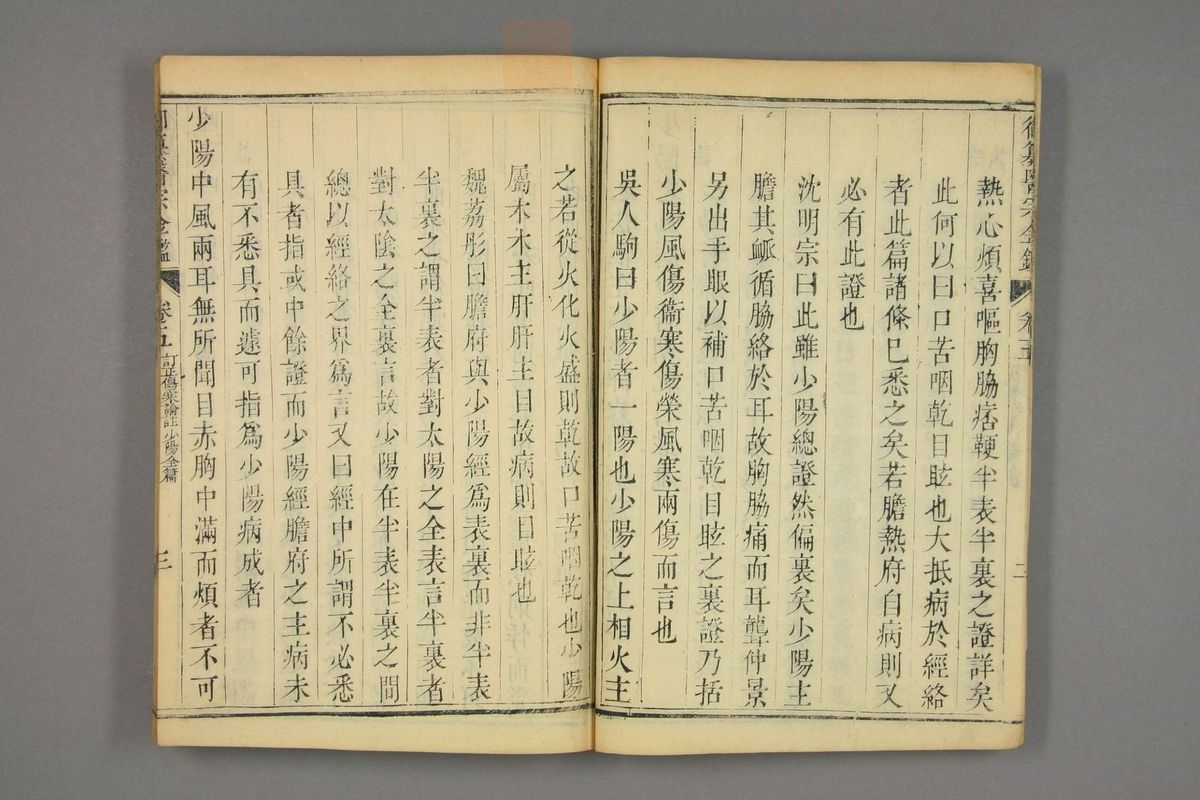 御纂醫宗金鑑 卷五 二
熱心煩喜嘔胸脇痞鞕半表半裏之證詳矣
此何以曰口苦咽乾目眩也大抵病於經絡
者此篇諸條已悉之矣若膽熱府自病則又
必有此證也
沈明宗曰此雖少陽總證然偏裏矣少陽主
膽其衇循脇絡於耳故胸脇痛而耳聾仲景
另出手眼以補口苦咽乾目眩之裏證乃括
少陽風傷衞寒傷榮風寒兩傷而言也
吳人駒曰少陽者一陽也少陽之上相火主
之若從火化火盛則乾故口苦咽乾也少陽
屬木木主肝肝主目故病則目眩也
魏荔彤曰膽府與少陽經爲表裏而非半表
半裏之謂半表者對太陽之全表言半裏者
對太陰之全裏言故少陽在半表半裏之間
總以經絡之界爲言又曰經中所謂不必悉
具者指或中餘證而少陽經膽府之主病未
有不悉具而遽可指爲少陽病成者
少陽中風兩耳無所聞目赤胸中滿而煩者不可
御纂醫宗金鑑 卷五 訂正傷寒論註少陽全篇 三